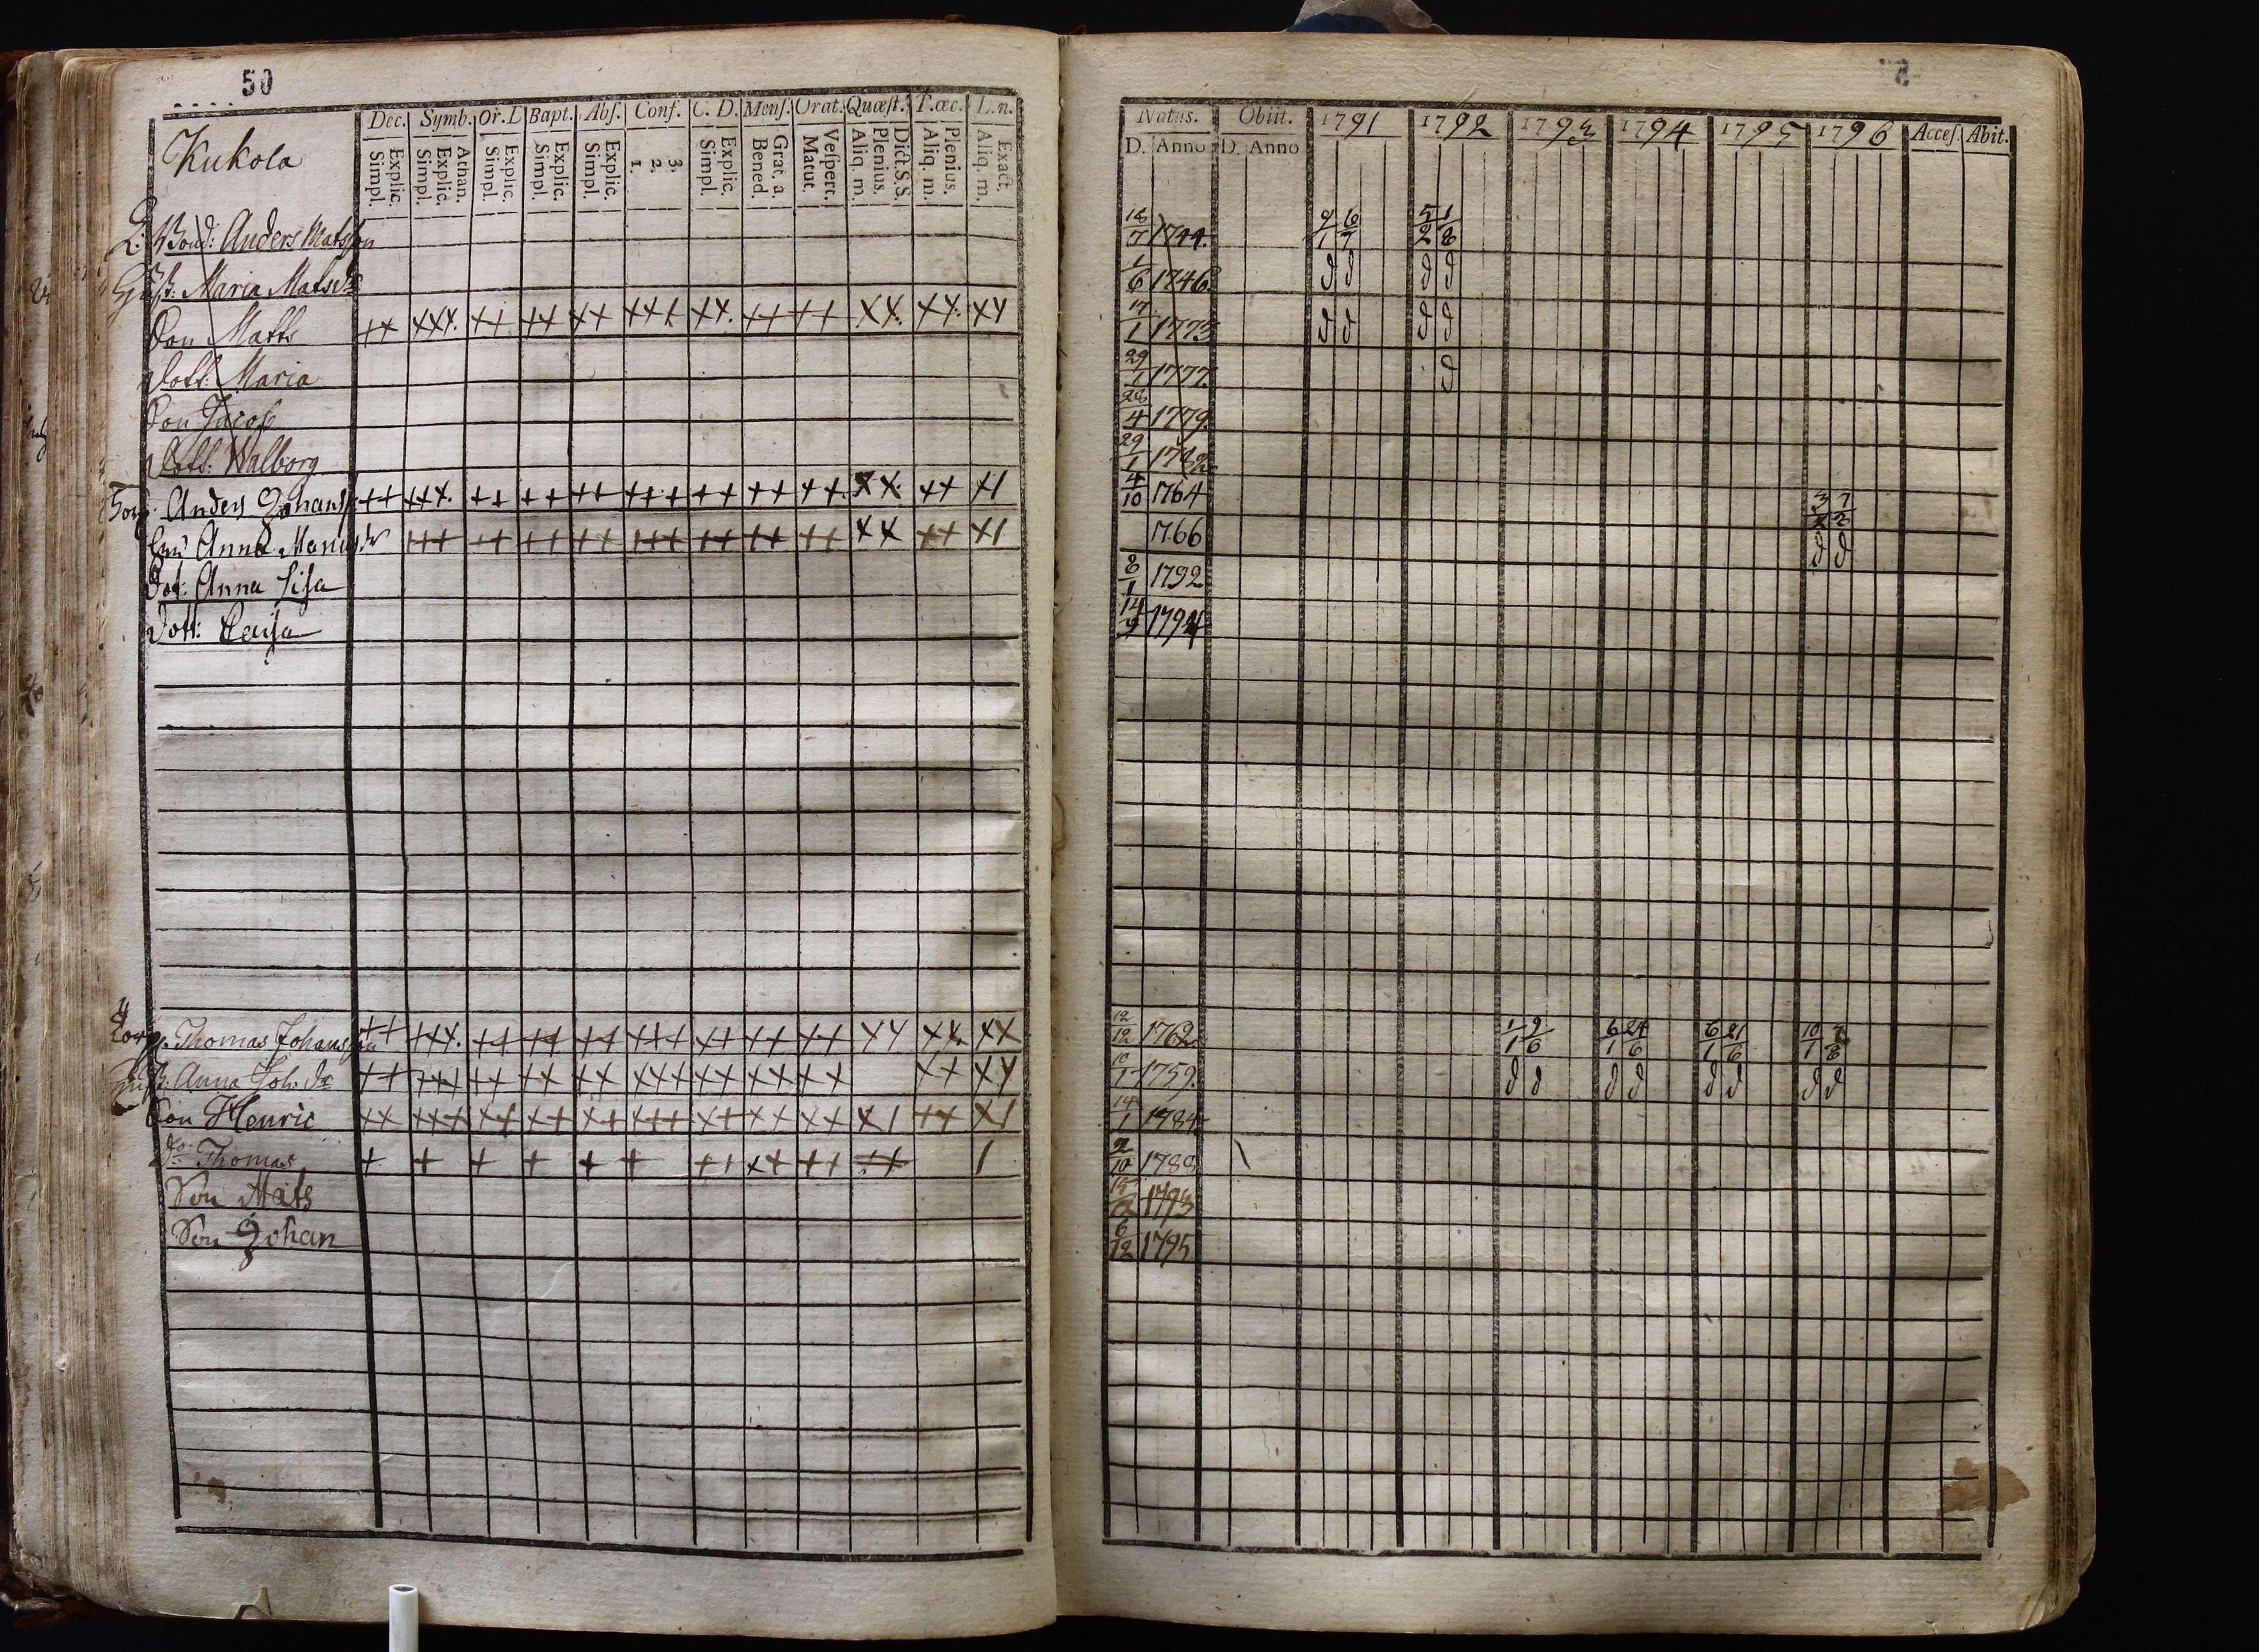 50
Dec. Symb. Or. D Bapt. Abs. Conf. C. D. Mens. Orat. Quæst. T. œc. L. n.
Explic. Simpl. Athan. Explic. Simpl. Explic. Simpl. Explic. Simpl. Explic. Simpl. 3. 2. 1. Explic. Simpl. Grat. a. Bened. Vespert. Matut. Dict. S. S. Plenius. Aliq. m. Plenius. Aliq. m. Exact. Aliq. m.
Kukola
Bond: Anders Matsson
Maria Matsdr
Son Matts ++ +++ ++ ++ ++ +++ ++ ++ ++ ++ ++ ++
Dott: Maria
Son Jacob
Dott: Walborg
Anders Johans ++ +++ ++ ++ ++ +++ ++ ++ ++ ++ ++ +1
Anna Mariusdr +++ ++ ++ ++ +++ ++ ++ ++ ++ ++ +1
Dot: Anna Lisa
Dott: Caisa
Torp. Thomas Johansson ++ +++ ++ ++ ++ +++ ++ ++ ++ ++ ++ ++
Anna Joh. dr ++ +++ ++ ++ ++ +++ ++ ++ ++ ++ ++
Son Henric ++ +++ ++ ++ ++ +++ ++ ++ ++ +1 ++ +1
do Thomas + + + + + + ++ ++ ++ ++ 1
Son Mats
Son Johan
Natus. Obiit. 1791 1792 1793 1794 1795 1796 Acces. Abit.
D. Anno D. Anno
18/7 1744. 9/1 6/7 5/2 1/8
1/6 1746. d d d d
17/1 1773 d d d d
29/1 1777. d
28/4 1779.
29/1 1782
4/10 1764 3/ 7/8
1766 d d
8/1 1792
14/9 1794
12/12 1762 1/1 9/6 6/1 24/6 6/1 21/6 10/1 7/8
10/1 1759. d d d d d d d d
14/1 1784
2/10 1788
15/2 1793
6/12 1795